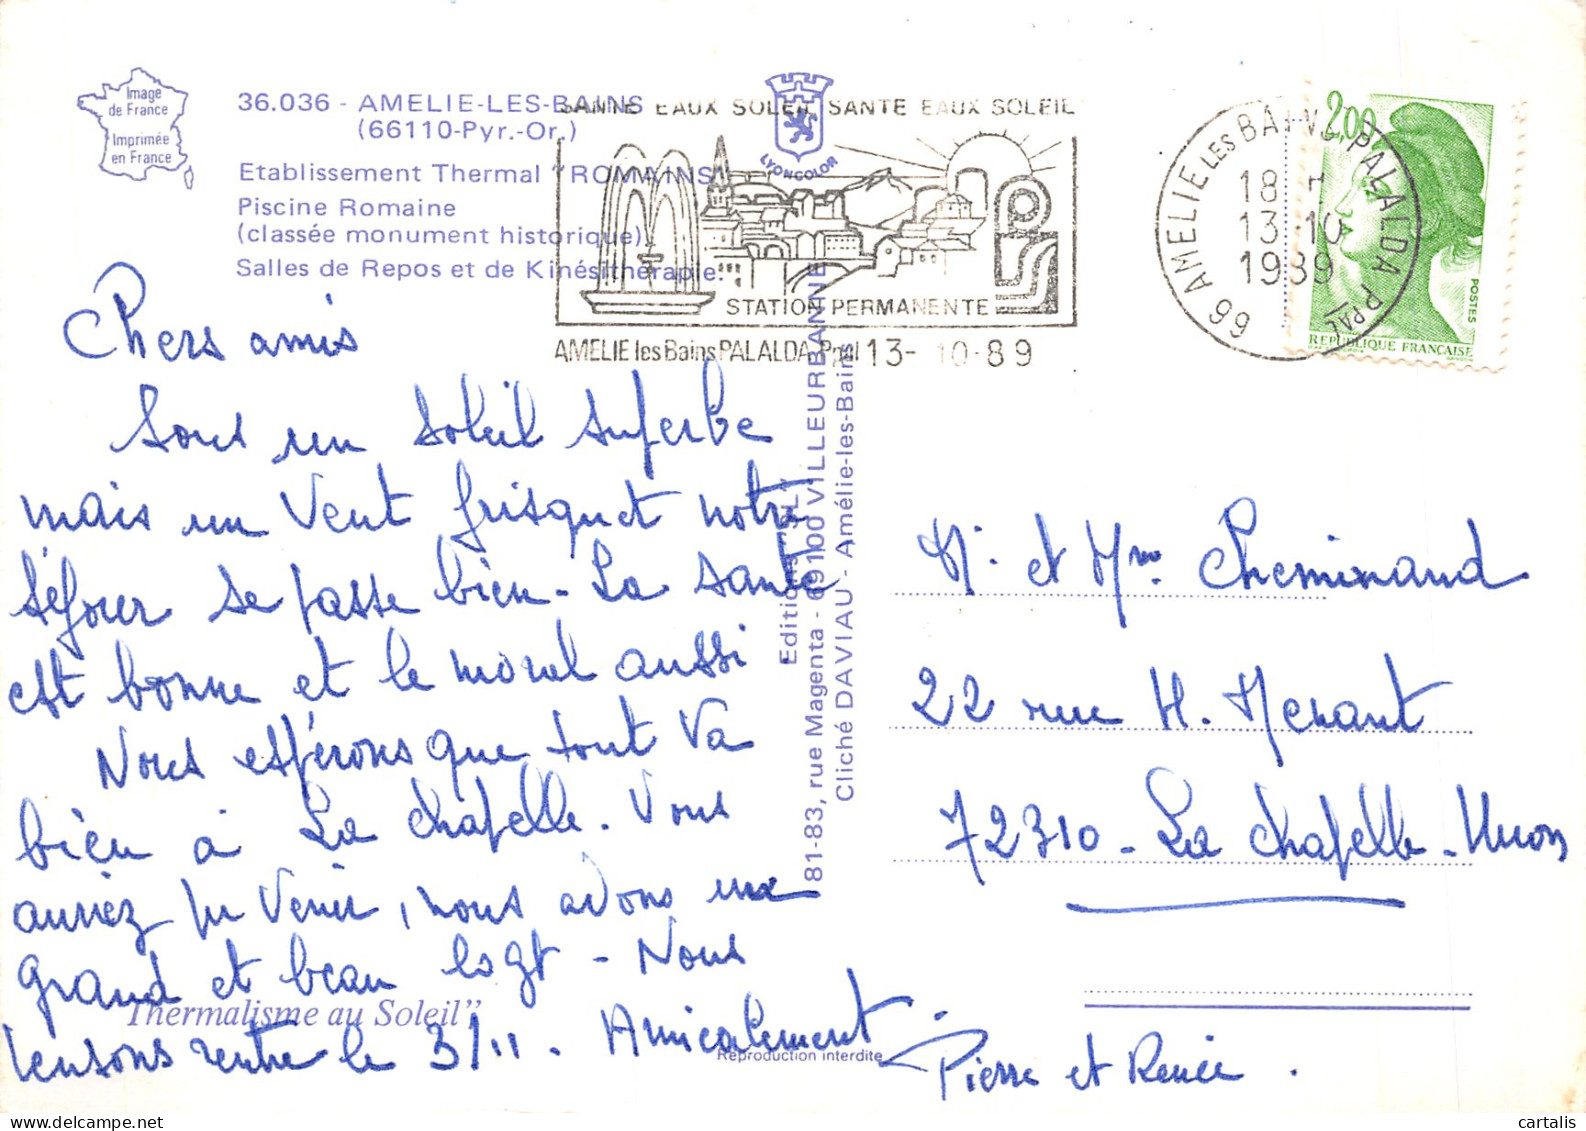 Image
de France
Imprimée
en France
36.036 - AMELIE-LES-BAINS
(66110-Pyr.-Or.)
Etablissement Thermal "ROMAINS"
Piscine Romaine
(classée monument historique).
Salles de Repos et de Kinésithérapie.
LYONCOLOR
SANTE EAUX SOLEIL SANTE EAUX SOLEIL
STATION PERMANENTE
AMELIE les Bains PALALDA Ppal 13-10-89
66 AMELIE LES BAINS PALALDA PPAL
18 H
13-10
1989
2,00
POSTES
REPUBLIQUE FRANCAISE
Chers amis
Sous un soleil superbe
mais un vent frisquet notre
séjour se passe bien - La santé
est bonne et le moral aussi
Nous espérons que tout va
bien à La Chapelle. Vous
auriez pu venir, nous avons un
grand et beau logt - Nous
pensons rentrer le 3/11. Amicalement
Pierre et Renée.
"Thermalisme au Soleil"
Reproduction interdite
Editions
81-83, rue Magenta - 69100 VILLEURBANNE
Cliché DAVIAU - Amélie-les-Bains
Mr et Mme Cheminand
22 rue H.
72310 - La Chapelle-
cartalis
www.delcampe.net